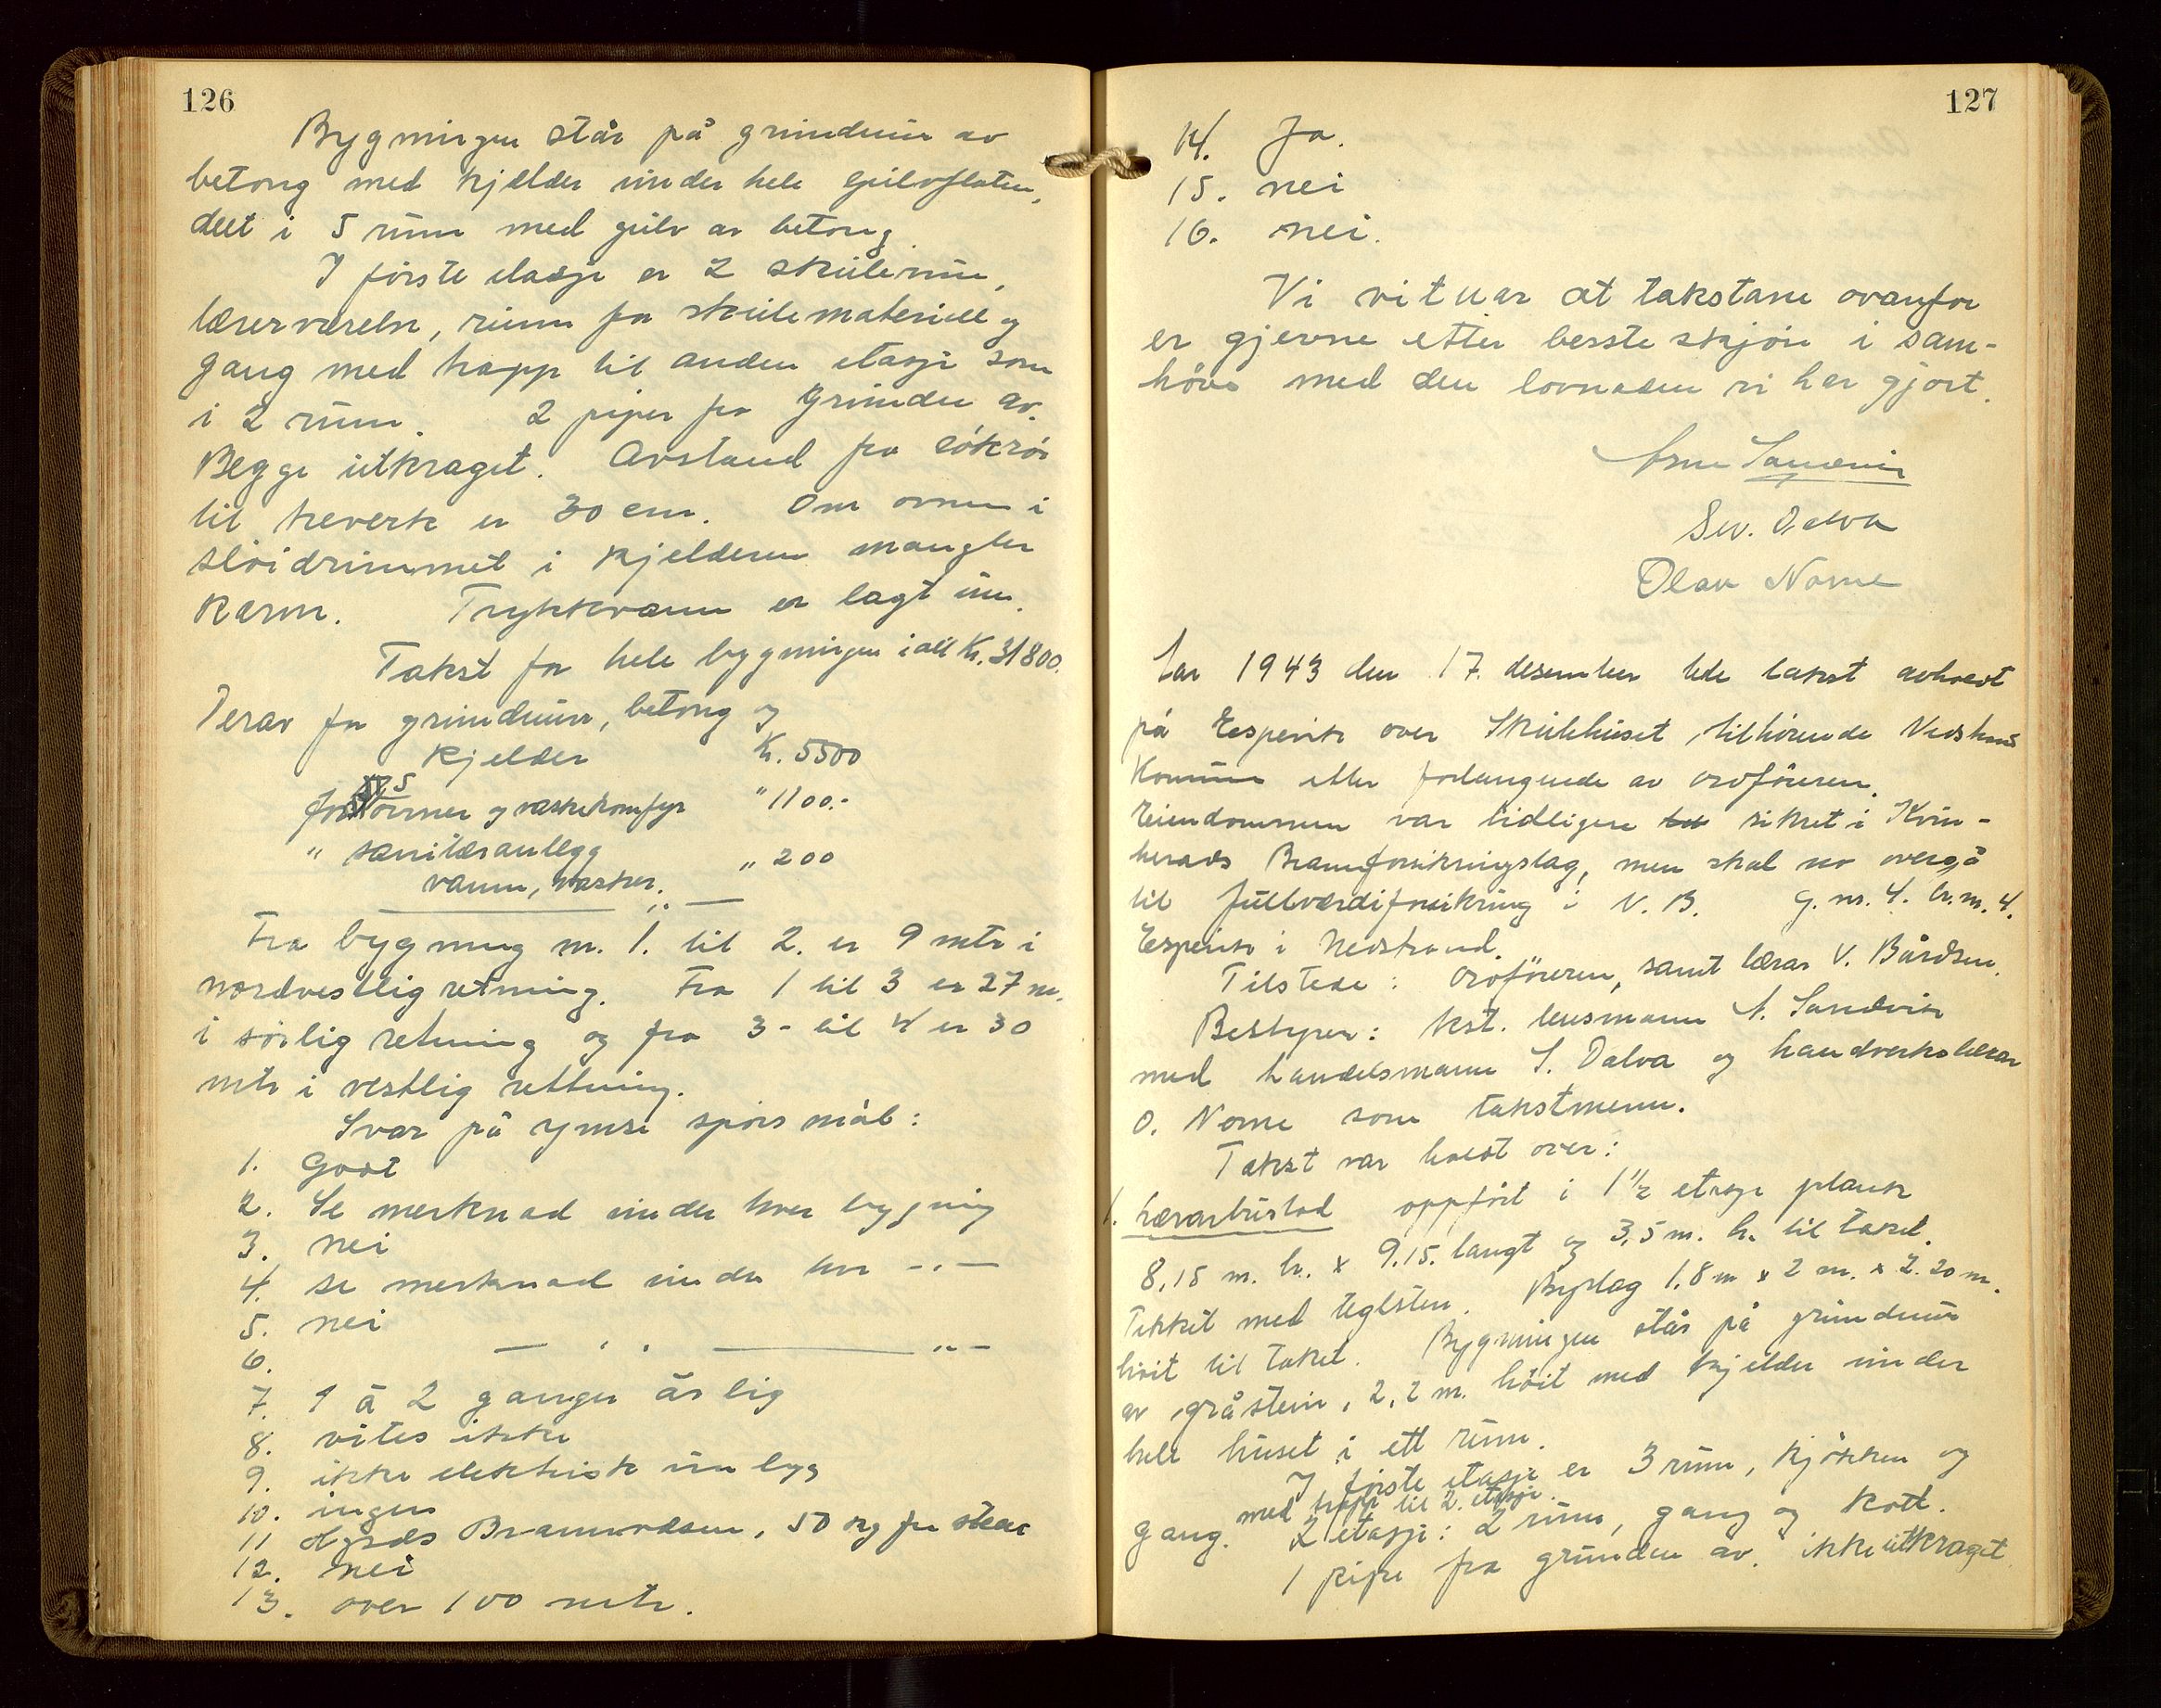 126
Bygningen står på grundmur av
betong med kjelder under hele gulvflaten,
delt i 5 rum med gulv av betong.
I förste etasje er 2 skulerum,
lærerværelse, rum for skulemateriell og
gang med trapp til anden etasje som
i 2 rum. 2 piper fra grunden av.
Begge utkraget. Avstand fra rökrör
til treverk er 30 cm. Om ovnen i
slöidrummet i kjelderen mangler
karm. Trykkvann er lagt inn.
Takst for hele bygningen i alt Kr. 31800.
Derav for grundmur, betong og
kjelder Kr. 5500
for 5 ovner og vaskekomfyr " 1100.-
" sanitæranlegg
vann, vasker. " 200
Fra bygning nr. 1. til 2. er 9 mtr i
nordvestlig retning. Fra 1 til 3 er 27 m.
i sörlig retning og fra 3 - til 4 er 30
mtr i vestlig rettning.
Svar på ymse spörsmål:
1. Godt
2. Se merknad under hver bygning
3. nei
4. se merknad under hver -"-
5. nei
6. — " — " —
7. 1 á 2 ganger årlig
8. vites ikke
9. ikke elektrisk innlegg
10. ingen
11 Brannvæsen, 50 kg
12. nei
13. over 100 mtr.
127
14. Ja.
15. nei
16. nei.
Vi vitnar at takstane ovanfor
er gjevne etter beste skjön i sam-
höve med den lovnaden vi har gjort.
Arne Sandvik
Sev. Dalva
Olav Nome
Aar 1943 den 17. desember ble takst avholdt
på Espevik over Skulehuset, tilhörende Nedstrand
Kommune etter forlangende av ordföreren.
Eiendommen var tidligere sikret i Kvin-
herads Brannforsikringslag, men skal no overgå
til fullverdiforsikring i N. B. G. nr. 4. br. nr. 4.
Espevik i Nedstrand.
Tilstede: Ordföreren, samt lærar V. Bårdsen.
Bestyrer: kst. lensmann A. Sandvik
med handelsmann S. Dalva og handverkslærar
O. Nome som takstmenn.
Takst var holdt over:
1. Lærarbustad oppfört i 1 1/2 etasje plank
8,15 m. br. x 9.15. langt og 3,5 m. h. til taket.
Tekket med teglsten. Byslag 1.8 m x 2 m. x 2.20 m.
höit til taket. Bygningen står på grundmur
av gråstein, 2,2 m. höit med kjelder under
hele huset i ett rum.
I förste etasje er 3 rum, kjökken og
gang. med trapp til 2. etasje.
2 etasje: 2 rum, gang og kott.
1 pipe fra grunden av. ikke utkraget.